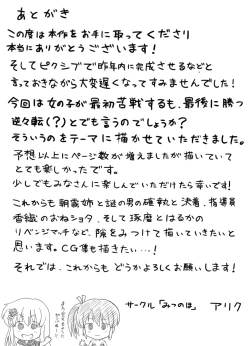 あとがき
この度は本作をお手に取ってくださり
本当にありがとうございます！
そしてピクシブで昨年内に完成させるなどと
言っておきながら大変遅くなってすみませんでした！
今回は女の子が最初苦戦するも、最後に勝つ
逆々転(？)とでも言うのでしょうか？
そういうのをテーマに描かせていただきました。
予想以上にページ数が増えましたが描いていて
とても楽しかったです。
少しでもみなさんに楽しんでいただけたら幸いです！
これからも朝霧姉と謎の男の確執と決着、指導員
香織のおねショタ、そして琢磨とはるかの
リベンジマッチなど、隙をみつけて描いていきたいと
思います。CG集も描きたい…！
それでは、これからもどうかよろしくお願いします！
サークル「みつのは」 アリク